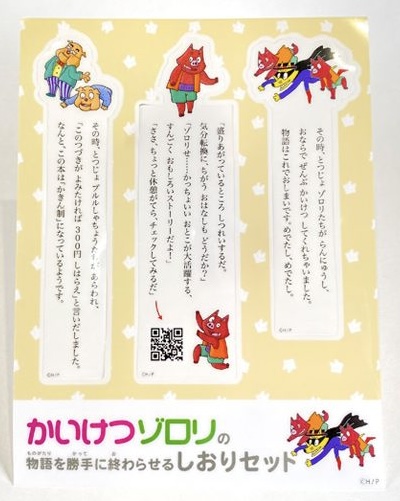 その時、とつじょ ブルルしゃちょうたちが あらわれ、
「このつづきが よみたければ ３００円 しはらえ」と言いだしました。
なんと、この本は「かきん制」になっているようです。
©H/P
「盛りあがっているところ しつれいするだ。
気分転換に、ちがう おはなしも どうだか？」
「ゾロリせ……かっちょいい おとこが大活躍する、
すんごく おもしろいストーリーだよ！」
「ささ、ちょっと休憩がてら、チェックしてみるだ」
©H/P
その時、とつじょ ゾロリたちが らんにゅうし、
おならで ぜんぶ かいけつ してくれちゃいました。
物語はこれでおしまいです。めでたし、めでたし。
©H/P
かいけつゾロリの
ものがたり かって お
物語を勝手に終わらせるしおりセット
©H/P